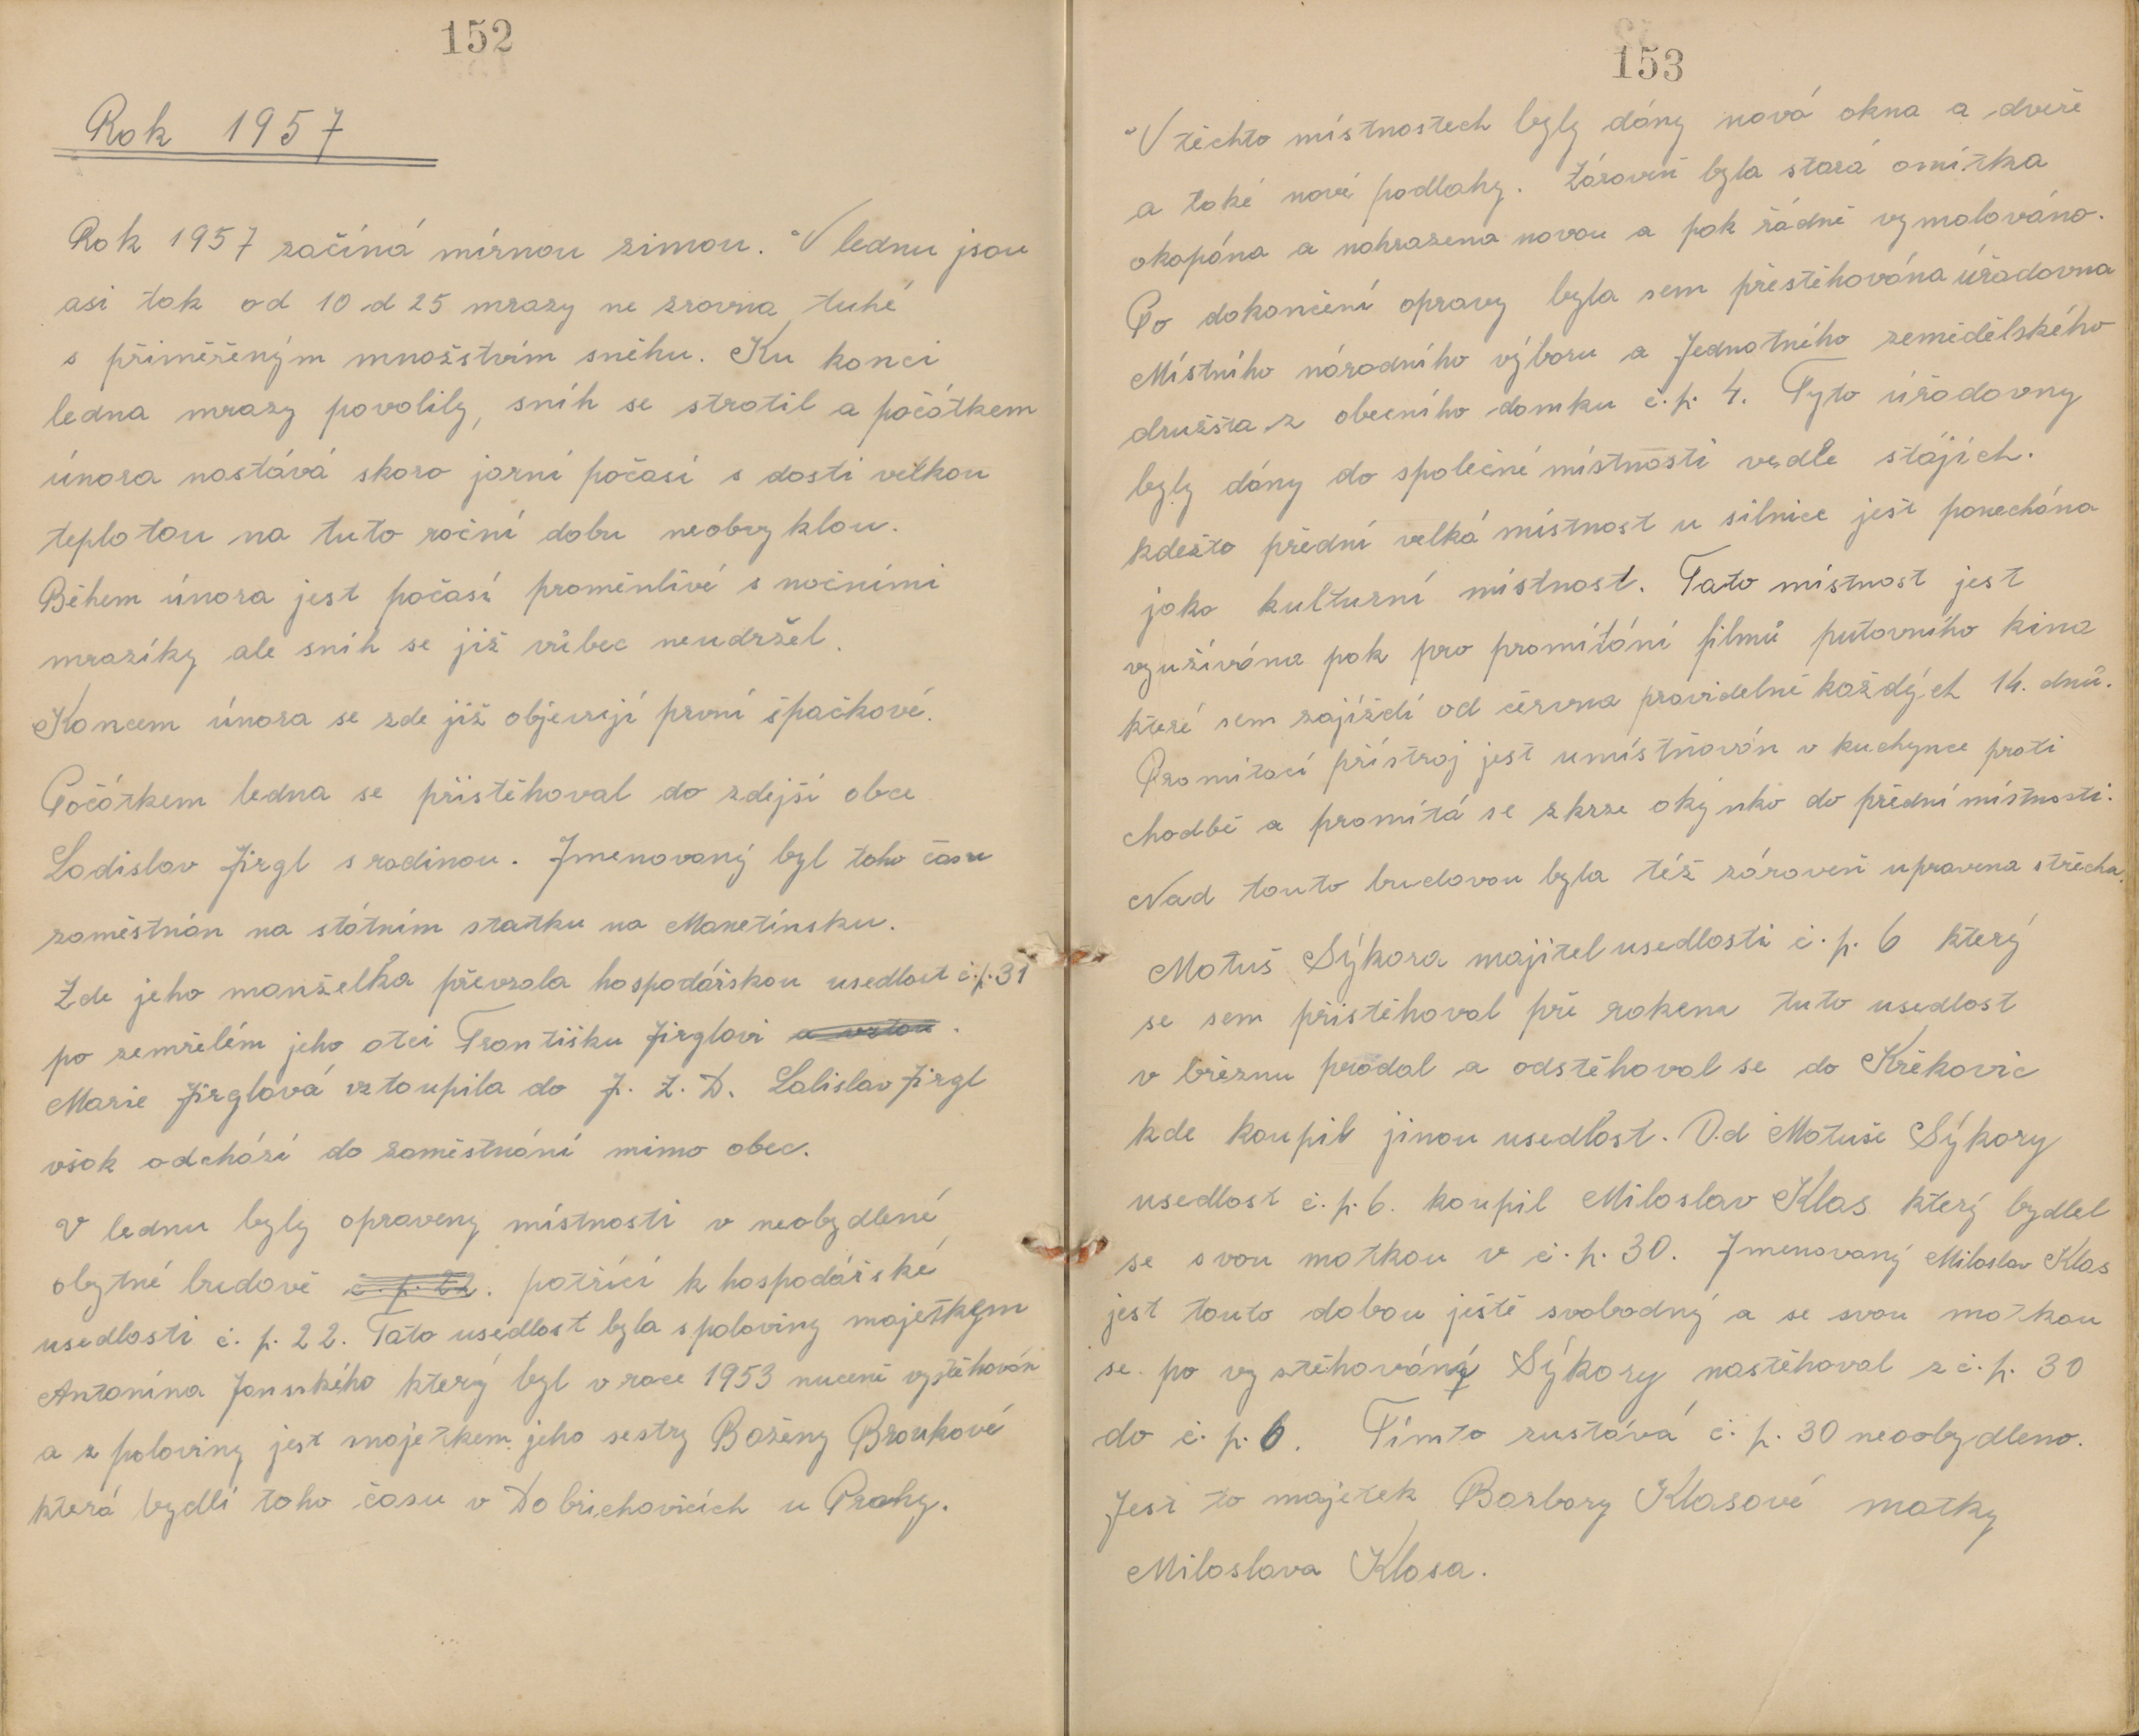 152
Rok 1957
Rok 1957 začíná mírnou zimou. V lednu jsou
asi tak od 10 d 25 mrazy ne zrovna tuhé
s přiměřeným množstvím sněhu. Ku konci
ledna mrazy povolily, sníh se stratil a počátkem
února nastává skoro jarní počasí s dosti velkou
teplotou na tuto roční dobu neobvyklou.
Během února jest počasí proměnlivé s nočními
mrazíky ale sníh se již vůbec neudržel.
Koncem února se zde již objevují první špačkové.
Počátkem ledna se přistěhoval do zdejší obce
Ladislav Jirgl s rodinou. Jmenovaný byl toho času
zaměstnán na státním statku na Manetínsku.
Zde jeho manželka převzala hospodářskou usedlost č.p. 31
po zemřelém jeho otci Františku Jirglovi a vstou.
Marie Jirglová vstoupila do J. Z. D. Ladislav Jirgl
však odchází do zaměstnání mimo obec.
V lednu byly opraveny místnosti v neobydlené
obytné budově č. p. 22. patřící k hospodářské
usedlosti č. p. 22. Tato usedlost byla s poloviny majetkem
Antonína Janského který byl v roce 1953 nuceně vystěhován
a z poloviny jest majetkem jeho sestry Boženy Broukové
která bydlí toho času v Dobřichovicích u Prahy.
153
V těchto místnostech byly dány nová okna a dveře
a také nové podlahy. Zároveň byla stará omítka
okopána a nahrazena novou a pak řádně vymalováno.
Po dokončení opravy byla sem přestěhována úřadovna
Místního národního výboru a Jednotného zemědělského
družsta z obecního domku č. p. 4. Tyto úřadovny
byly dány do společné místnosti vedle stájích.
kdežto přední velká místnost u silnice jest ponechána
jako kulturní místnost. Tato místnost jest
využívána pak pro promítání filmů putovního kina
které sem zajíždí od června pravidelně každých 14. dnů.
Promítací přístroj jest umístňován v kuchynce proti
chodbě a promítá se zkrze okýnko do přední místnosti.
Nad touto budovou byla též zároveň upravena střecha.
Matuš Sýkora majitel usedlosti č. p. 6 který
se sem přistěhoval pře rokem tuto usedlost
v březnu prodal a odstěhoval se do Křekovic
kde koupil jinou usedlost. Od Matuše Sýkory
usedlost č. p. 6. koupil Miloslav Klas který bydlel
se svou matkou v č. p. 30. Jmenovaný Miloslav Klas
jest touto dobou ještě svobodný a se svou matkou
se po vystěhování Sýkory nastěhoval z č. p. 30
do č. p. 6. Tímto zustává č. p. 30 neoobydleno.
Jest to majetek Barbory Klasové matky
Miloslava Klasa.